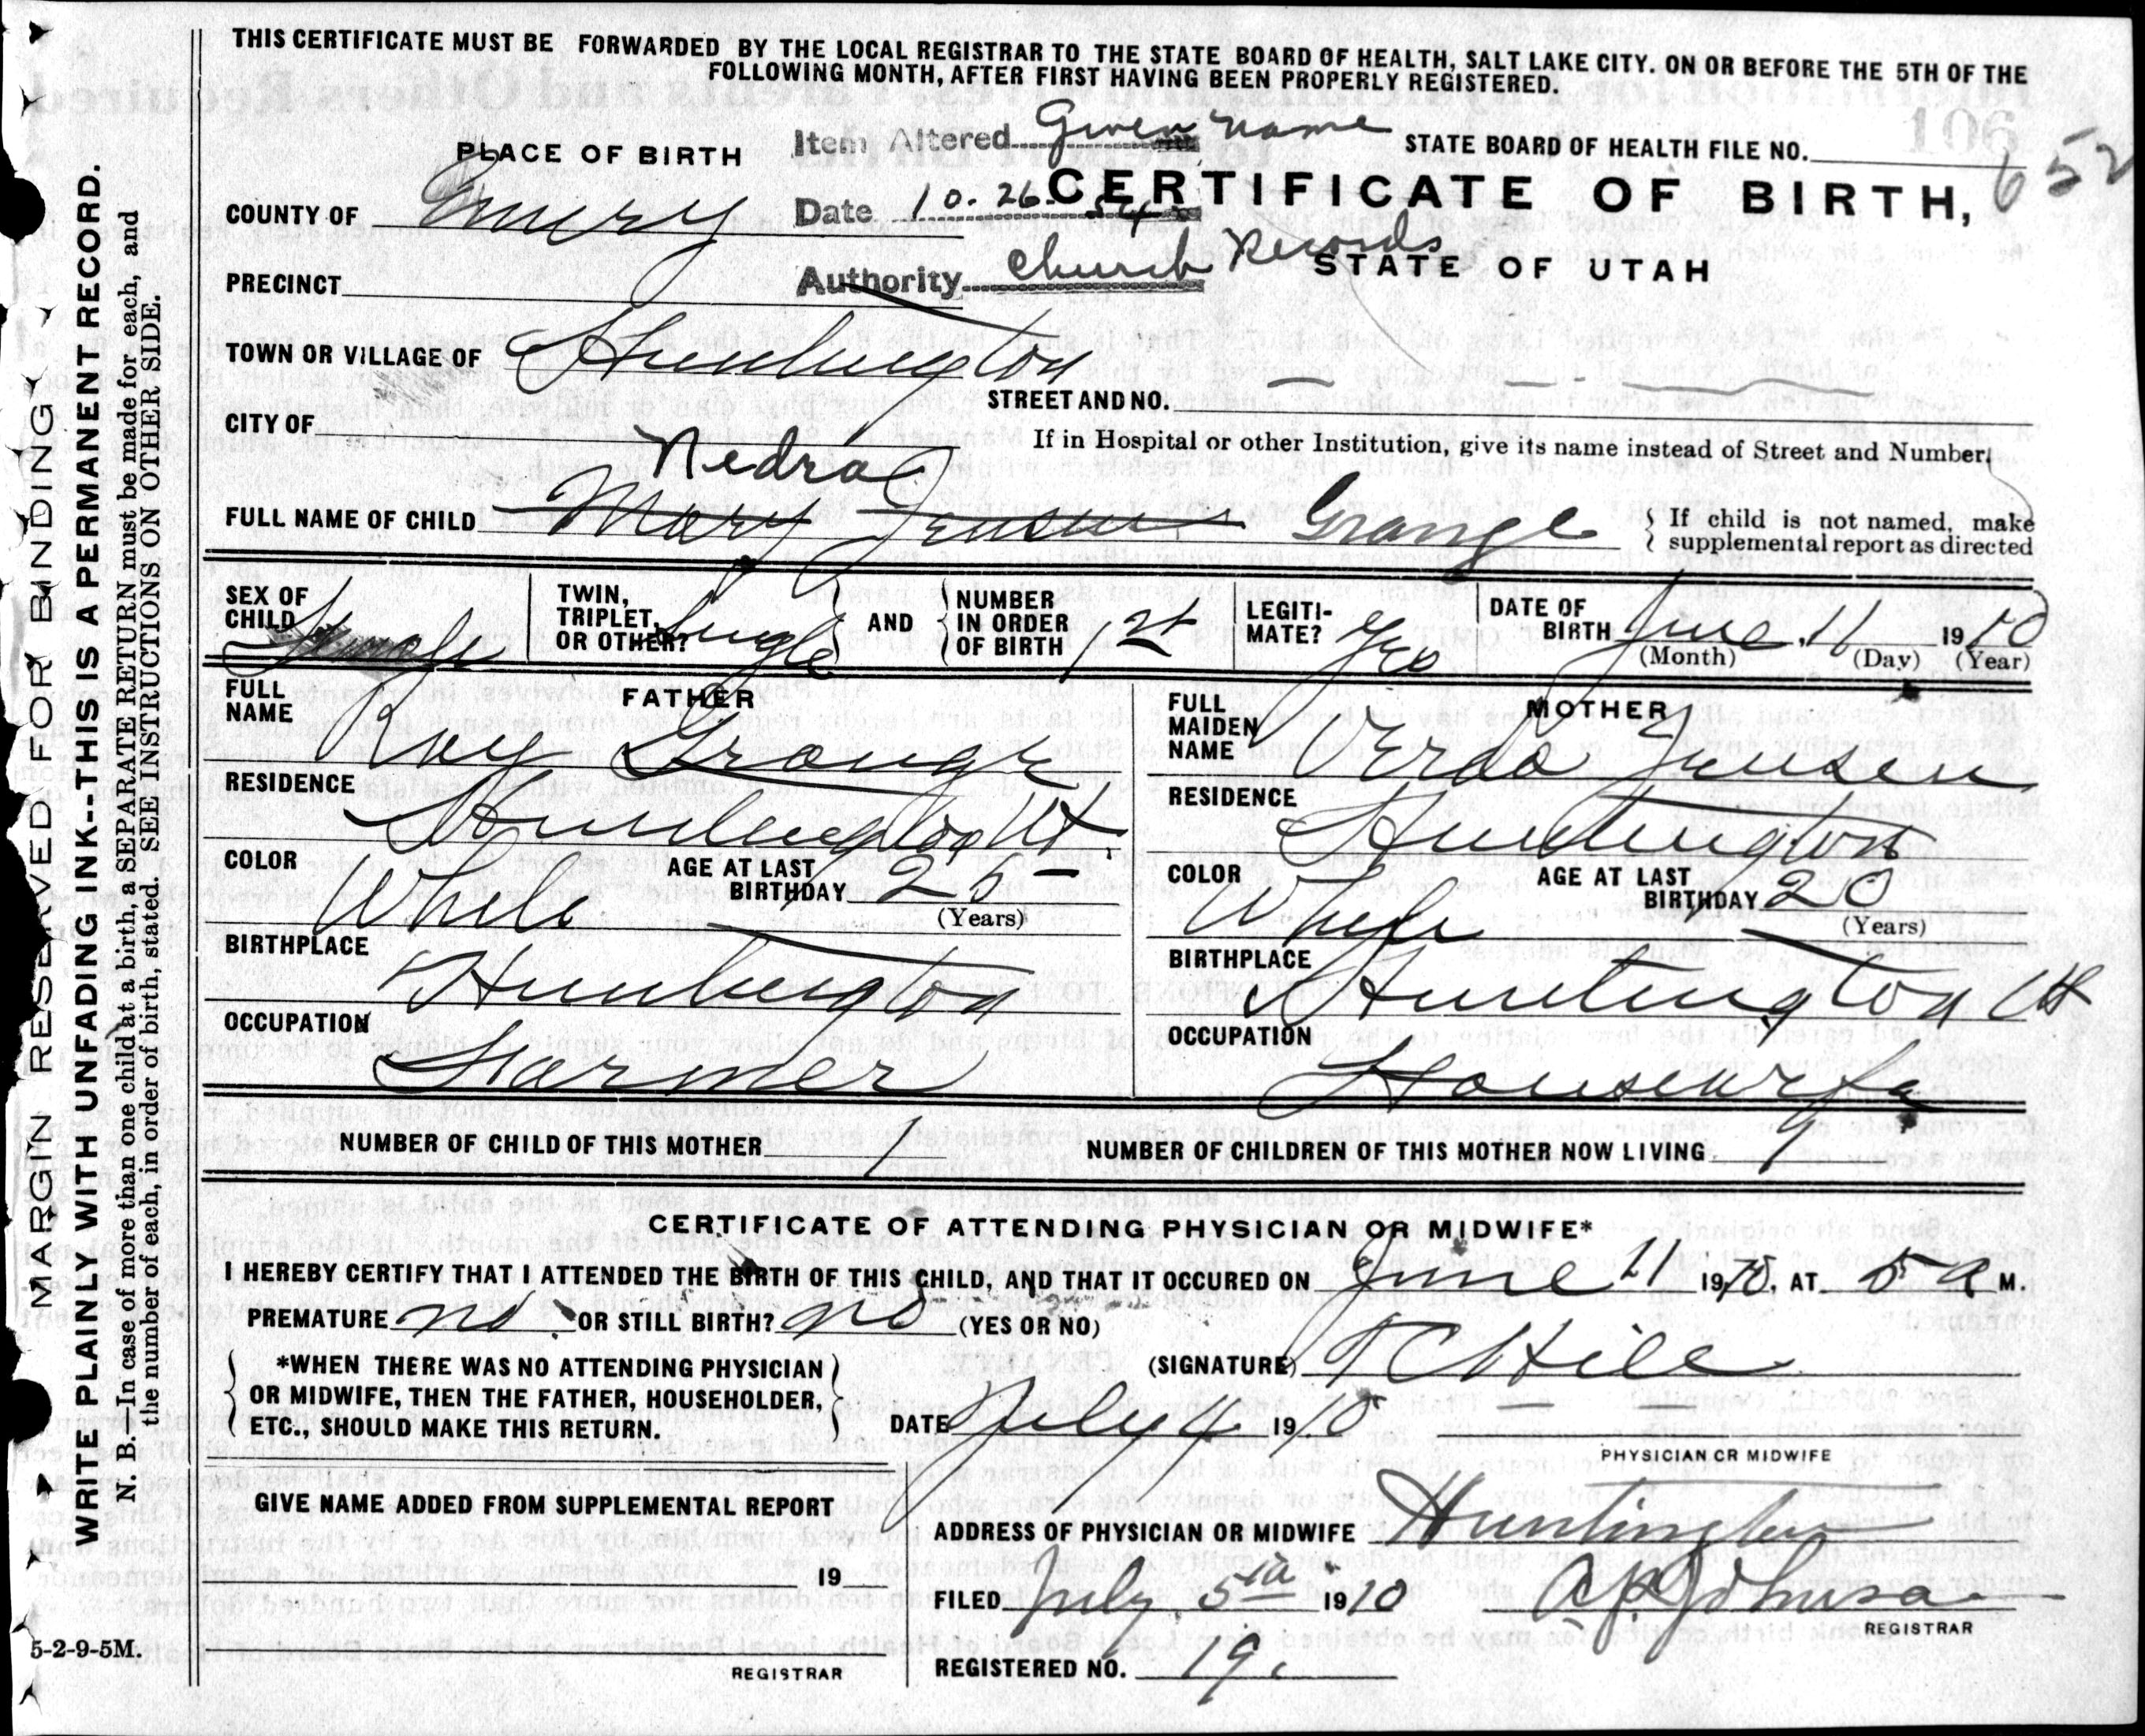 THIS CERTIFICATE MUST BE FORWARDED BY THE LOCAL REGISTRAR TO THE STATE BOARD OF HEALTH, SALT LAKE CITY. ON OR BEFORE THE 5TH OF THE
FOLLOWING MONTH, AFTER FIRST HAVING BEEN PROPERLY REGISTERED.
106
PLACE OF BIRTH
Item Altered Given Name
STATE BOARD OF HEALTH FILE NO. 652
COUNTY OF Emery
Date 10.26.54
CERTIFICATE OF BIRTH,
PRECINCT
Authority Church Records
STATE OF UTAH
TOWN OR VILLAGE OF Huntington
STREET AND NO.
CITY OF
If in Hospital or other Institution, give its name instead of Street and Number.
Nedra
FULL NAME OF CHILD Mary Jensen Grange
If child is not named, make
supplemental report as directed
SEX OF CHILD Female
TWIN, TRIPLET, OR OTHER? Single
AND
NUMBER IN ORDER OF BIRTH 1st
LEGITI-MATE? Yes
DATE OF BIRTH June 11 1910
(Month) (Day) (Year)
FATHER
FULL NAME Ray Grange
RESIDENCE Huntington Ut.
COLOR White
AGE AT LAST BIRTHDAY 25
(Years)
BIRTHPLACE Huntington
OCCUPATION Farmer
MOTHER
FULL MAIDEN NAME Verda Jensen
RESIDENCE Huntington
COLOR White
AGE AT LAST BIRTHDAY 20
(Years)
BIRTHPLACE Huntington Ut
OCCUPATION Housewife
NUMBER OF CHILD OF THIS MOTHER 1
NUMBER OF CHILDREN OF THIS MOTHER NOW LIVING 1
CERTIFICATE OF ATTENDING PHYSICIAN OR MIDWIFE*
I HEREBY CERTIFY THAT I ATTENDED THE BIRTH OF THIS CHILD, AND THAT IT OCCURED ON June 11 1910, AT 5 A M.
PREMATURE no OR STILL BIRTH? no (YES OR NO)
*WHEN THERE WAS NO ATTENDING PHYSICIAN
OR MIDWIFE, THEN THE FATHER, HOUSEHOLDER,
ETC., SHOULD MAKE THIS RETURN.
(SIGNATURE) T C Hill
DATE July 4 1910
PHYSICIAN OR MIDWIFE
GIVE NAME ADDED FROM SUPPLEMENTAL REPORT
ADDRESS OF PHYSICIAN OR MIDWIFE Huntington
19
FILED July 5th 1910
REGISTRAR
REGISTRAR
REGISTERED NO. 19.
5-2-9-5M.
MARGIN RESERVED FOR BINDING
WRITE PLAINLY WITH UNFADING INK--THIS IS A PERMANENT RECORD.
N. B.--In case of more than one child at a birth, a SEPARATE RETURN must be made for each, and
the number of each, in order of birth, stated. SEE INSTRUCTIONS ON OTHER SIDE.